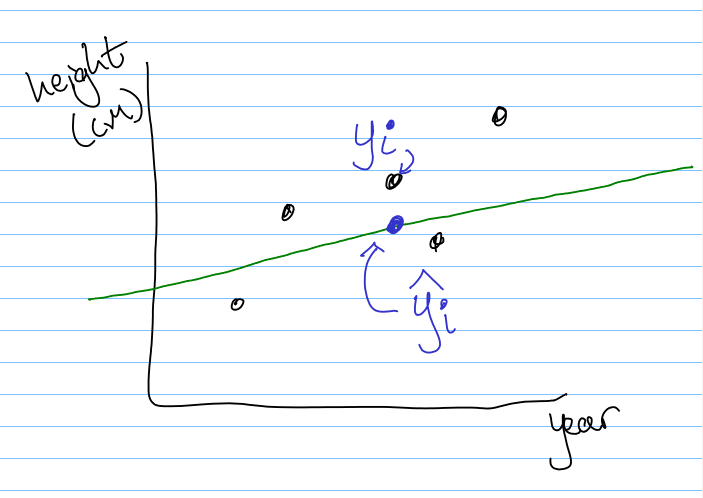 height
(cm)
yi
ŷi
year